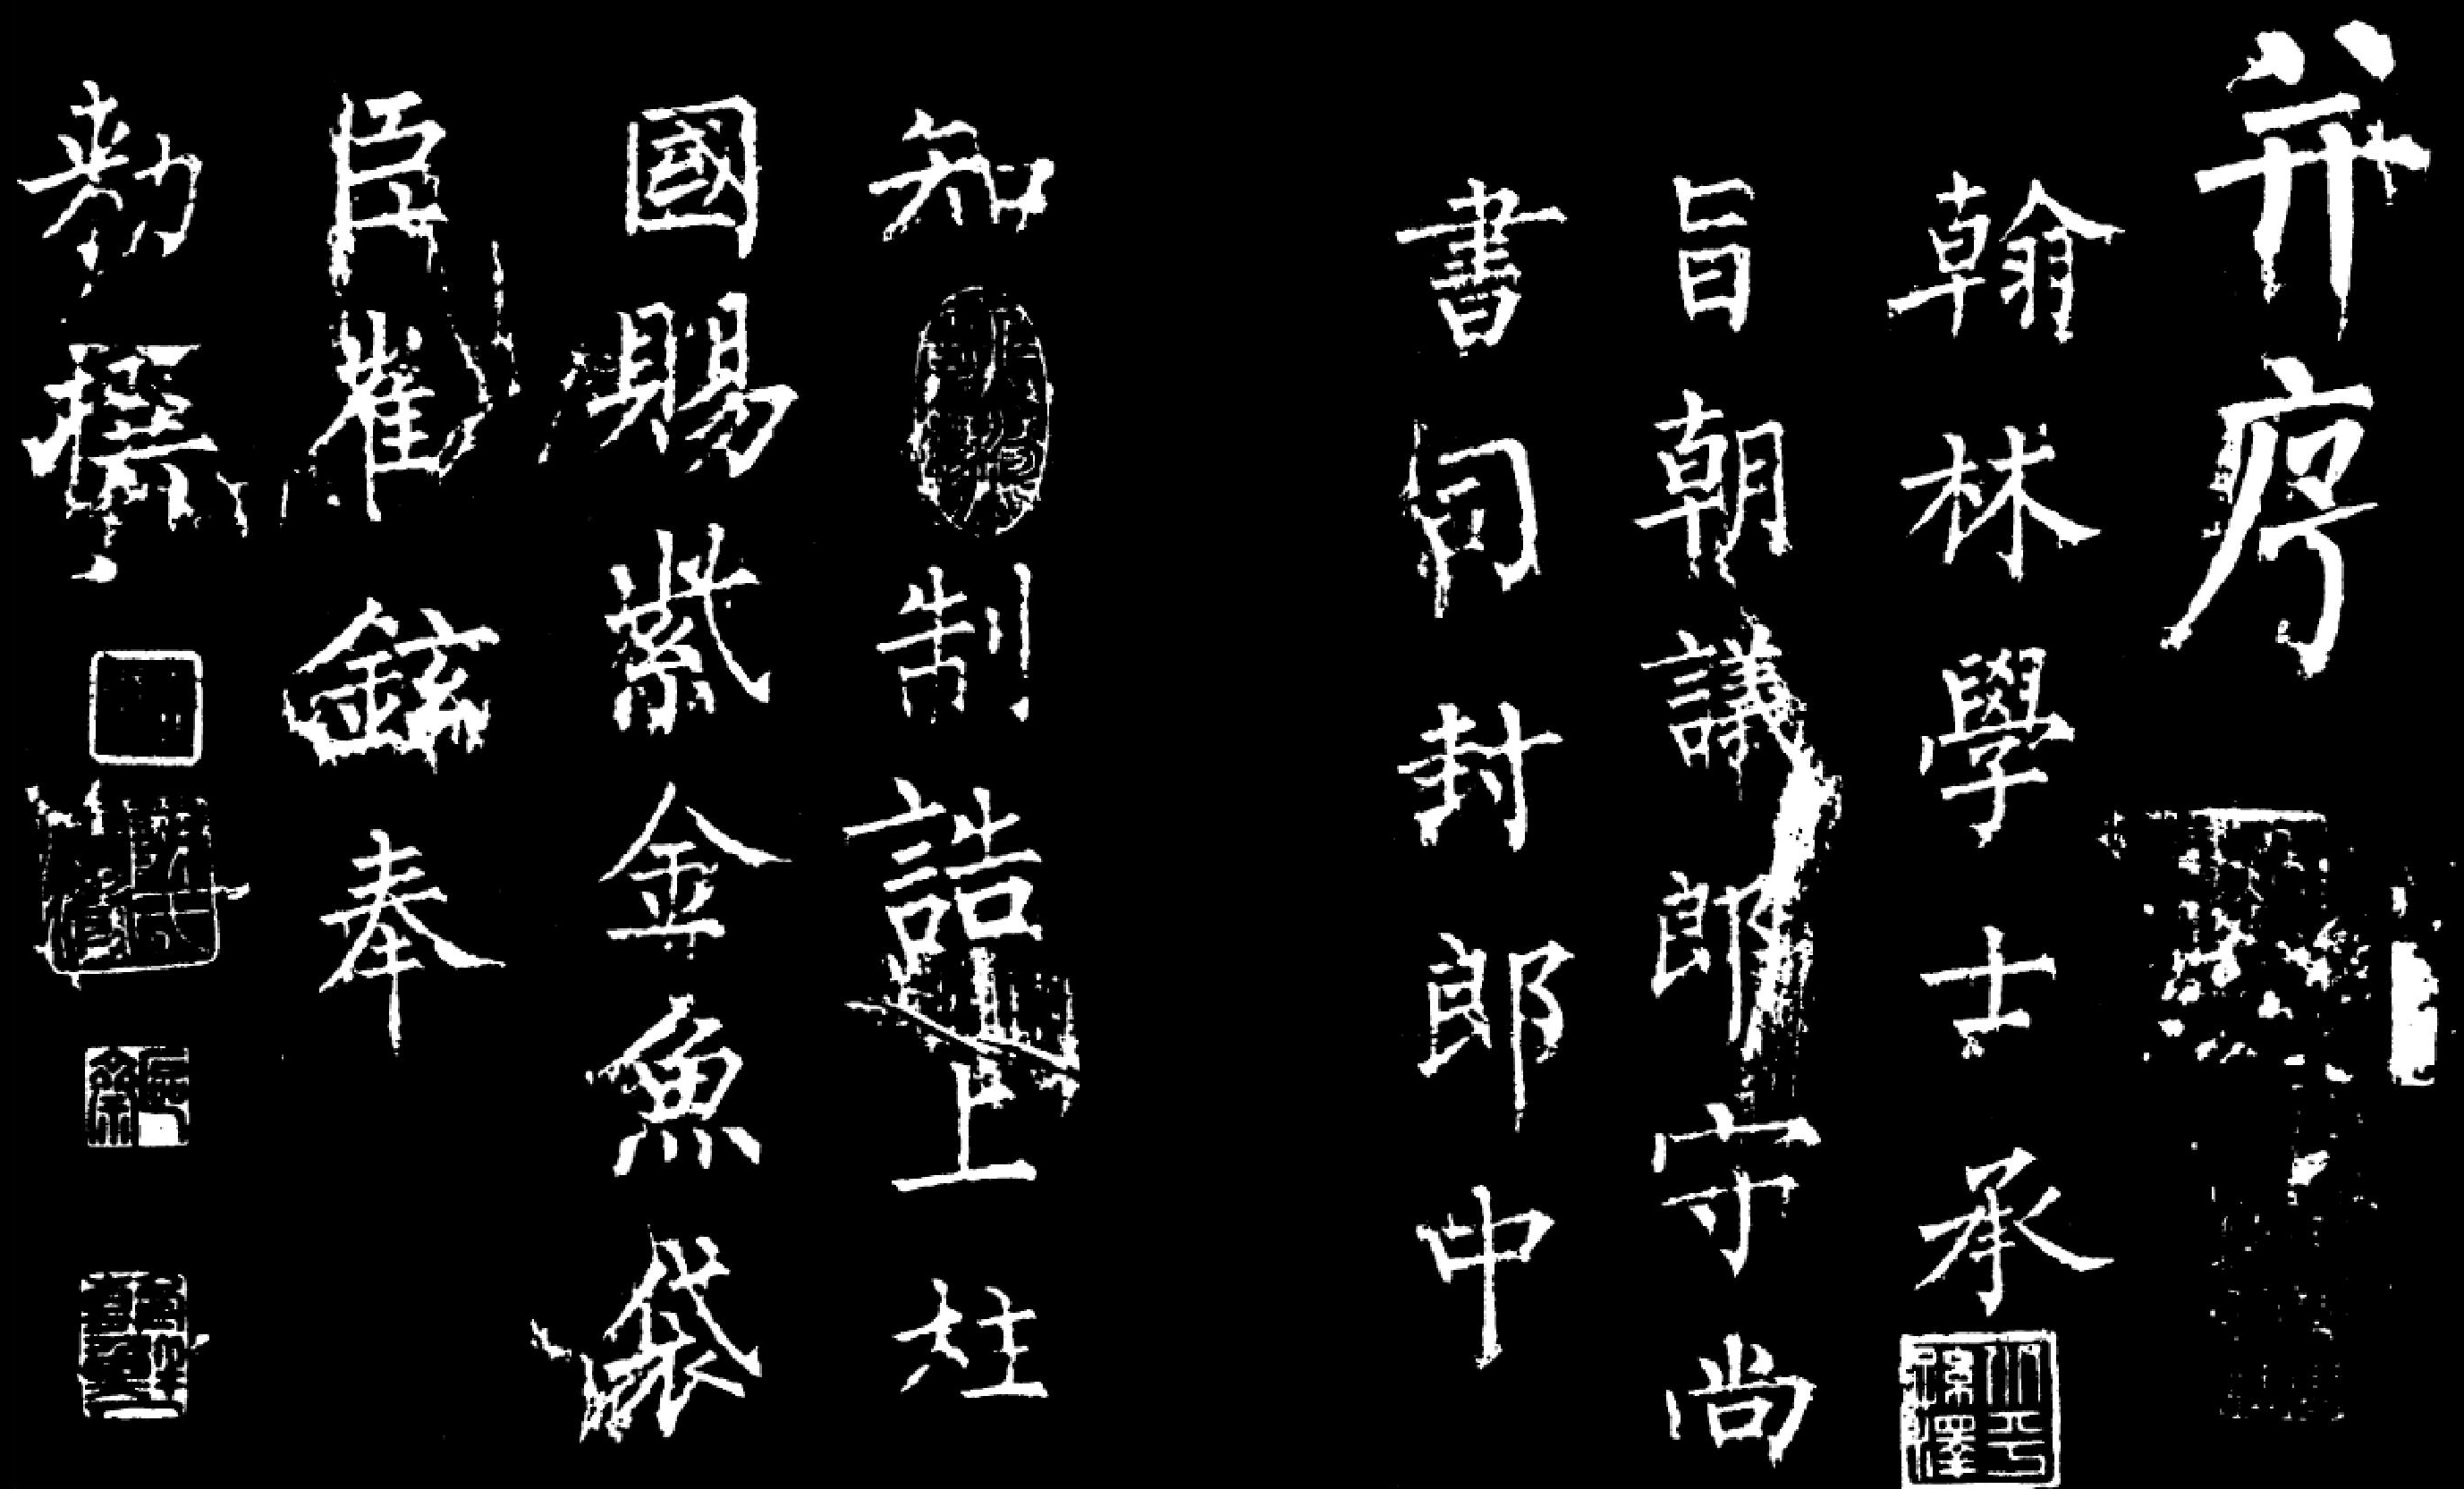 并序
翰林學士承
旨朝議郎守尚
書司封郎中
知制誥上柱
國賜紫金魚袋
臣崔鉉奉
勑撰